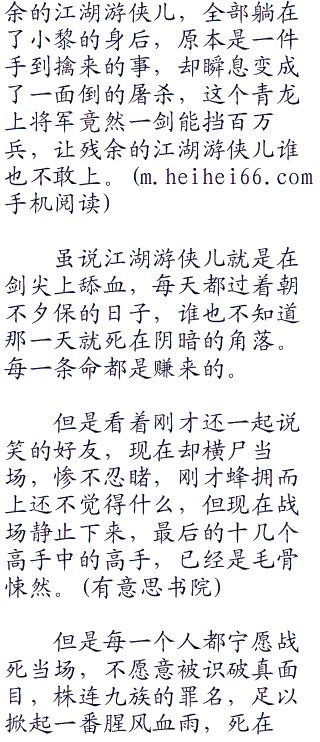 余的江湖游侠儿，全部躺在
了小黎的身后，原本是一件
手到擒来的事，却瞬息变成
了一面倒的屠杀，这个青龙
上将军竟然一剑能挡百万
兵，让残余的江湖游侠儿谁
也不敢上。(m.heihei66.com
手机阅读)
虽说江湖游侠儿就是在
剑尖上舔血，每天都过着朝
不夕保的日子，谁也不知道
那一天就死在阴暗的角落。
每一条命都是赚来的。
但是看着刚才还一起说
笑的好友，现在却横尸当
场，惨不忍睹，刚才蜂拥而
上还不觉得什么，但现在战
场静止下来，最后的十几个
高手中的高手，已经是毛骨
悚然。(有意思书院)
但是每一个人都宁愿战
死当场，不愿意被识破真面
目，株连九族的罪名，足以
掀起一番腥风血雨，死在